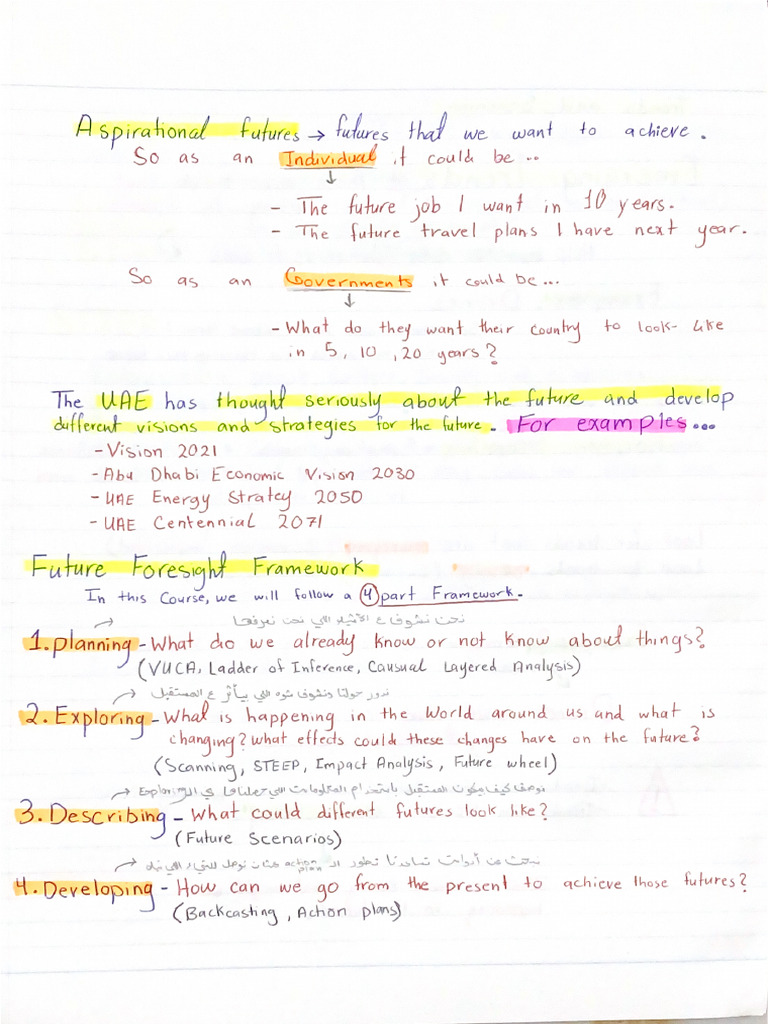 Aspirational futures → futures that we want to achieve.
So as an Individual it could be ..
↓
- The future job I want in 10 years.
- The future travel plans I have next year.
So as an Governments it could be...
↓
- What do they want their country to look-like
in 5, 10, 20 years?
The UAE has thought seriously about the future and develop
different visions and strategies for the future. For examples...
- Vision 2021
- Abu Dhabi Economic Vision 2030
- UAE Energy Stratey 2050
- UAE Centennial 2071
Future Foresight Framework
In this Course, we will follow a 4 part Framework.
نحن نشوف ع الأشياء اللي نحن نعرفها
1. planning - What do we already know or not know about things?
(VUCA, Ladder of Inference, Causual Layered Analysis)
ندور حولنا ونشوف شوه اللي يأثر ع المستقبل
2. Exploring - What is happening in the World around us and what is
changing? what effects could these changes have on the future?
(Scanning, STEEP, Impact Analysis, Future wheel)
نوصف كيف يكون المستقبل باستخدام المعلومات اللي حصلناها في الـ Exploring
3. Describing - What could different futures look like?
(Future Scenarios)
نبحث عن أدوات تساعدنا نطور الـ action plan عشان نوصل للشيء اللي
4. Developing - How can we go from the present to achieve those futures?
(Backcasting, Action plans)